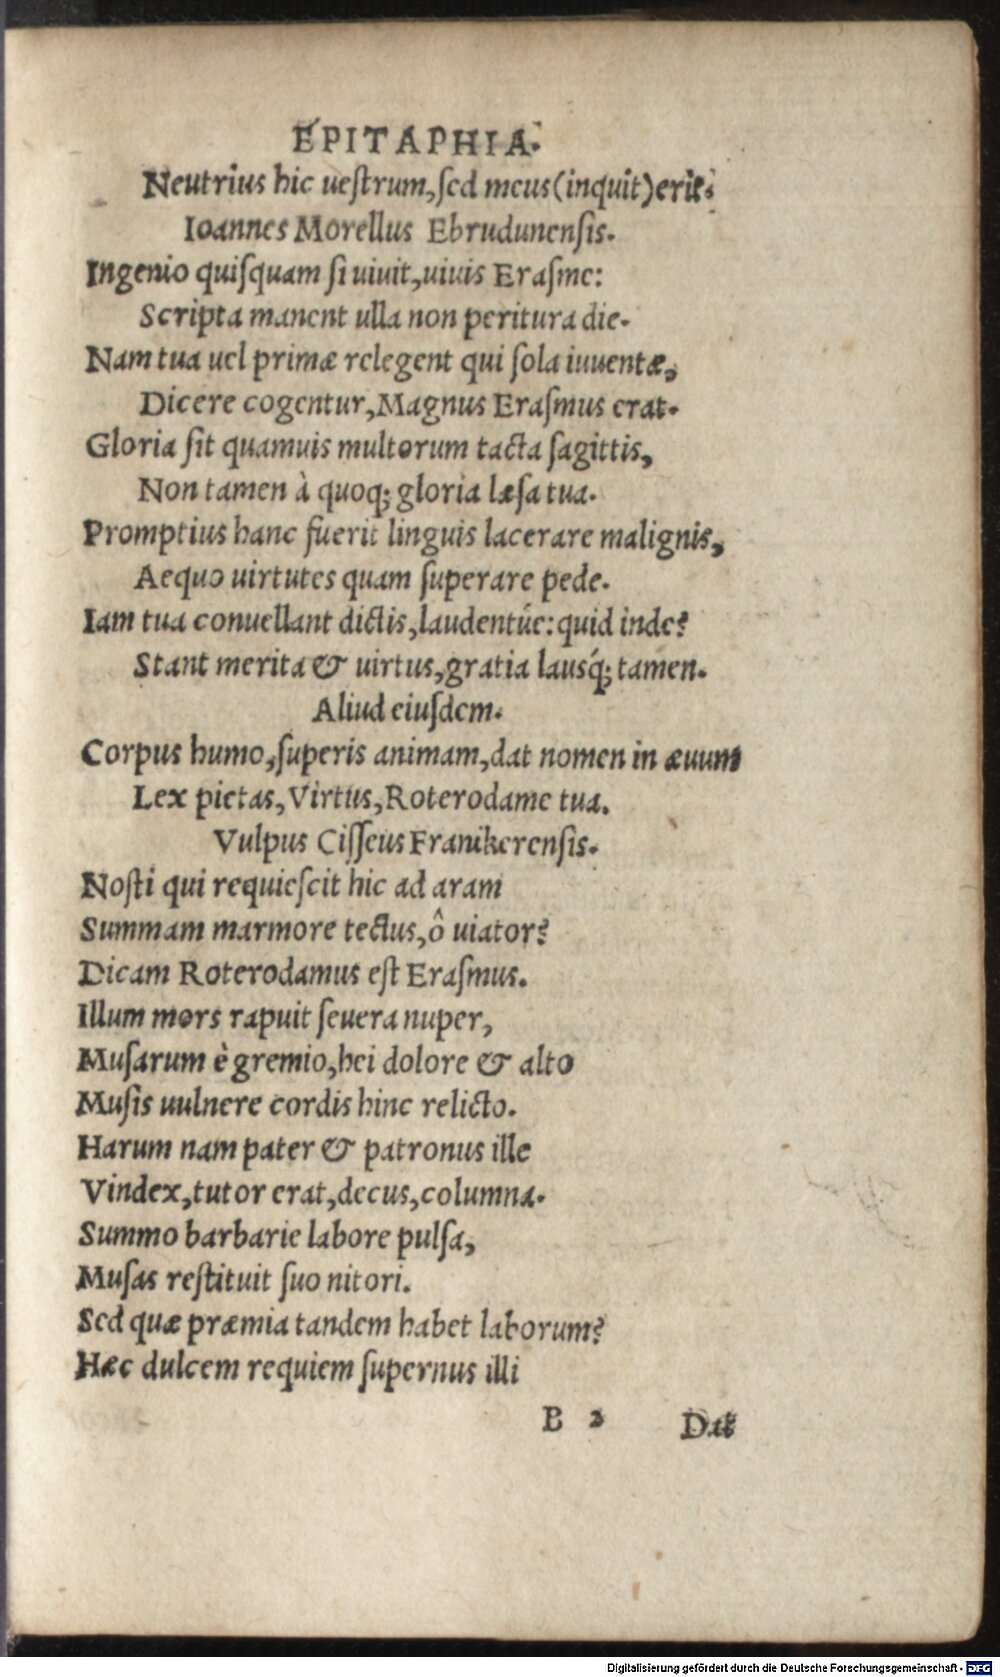 EPITAPHIA.
Neutrius hic ueſtrum, ſed meus (inquit) erit.
Ioannes Morellus Ebrudunenſis.
Ingenio quiſquam ſi viuit, viuis Eraſme:
Scripta manent ulla non peritura die.
Nam tua uel primæ relegent qui ſola iuuentæ,
Dicere cogentur, Magnus Eraſmus erat.
Gloria ſit quamuis multorum tacta ſagittis,
Non tamen à quoq; gloria læſa tua.
Promptius hanc fuerit linguis lacerare malignis,
Aequo uirtutes quam ſuperare pede.
Iam tua conuellant dictis, laudentúe: quid inde?
Stant merita & uirtus, gratia lausq́; tamen.
Aliud eiuſdem.
Corpus humo, ſuperis animam, dat nomen in æuum
Lex pietas, Virtus, Roterodame tua.
Vulpus Ciſſeus Franikerenſis.
Noſti qui requieſcit hic ad aram
Summam marmore tectus, ô uiator?
Dicam Roterodamus eſt Eraſmus.
Illum mors rapuit ſeuera nuper,
Muſarum è gremio, hei dolore & alto
Muſis uulnere cordis hinc relicto.
Harum nam pater & patronus ille
Vindex, tutor erat, decus, columna.
Summo barbarie labore pulſa,
Muſas reſtituit ſuo nitori.
Sed quæ præmia tandem habet laborum?
Hæc dulcem requiem ſupernus illi
B 2 Dat
Digitalisierung gefördert durch die Deutsche Forschungsgemeinschaft - DFG